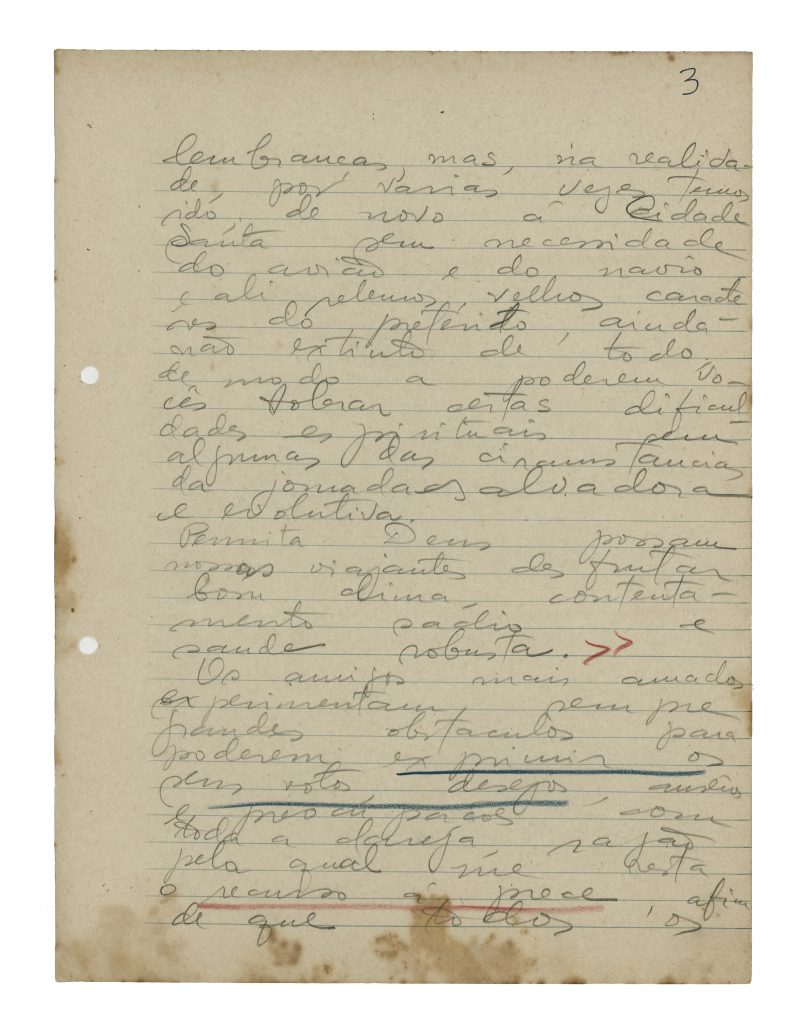 3
lembranças, mas, na realida-
de, por varias vezes temos
ido, de novo á Cidade
Santa sem necessidade
do avião e do navio
e ali relemos, velhos caracte
res do pretérito, ainda
não extinto de todo.
de modo a poderem vo-
cês tolerar certas dificul
dades espirituais em
algumas das circunstancias
da jornada salvadora
e evolutiva.
Permita Deus possam
nossos viajantes desfrutar
bom clima, contenta-
mento sadio e
saude robusta. >>
Os amigos mais amados
experimentam, sempre
grandes obstaculos para
poderem exprimir os
seus votos, desejos, anseios
e preocupações com
toda a clareza, razão
pela qual me resta
o recurso á prece afim
de que todos os